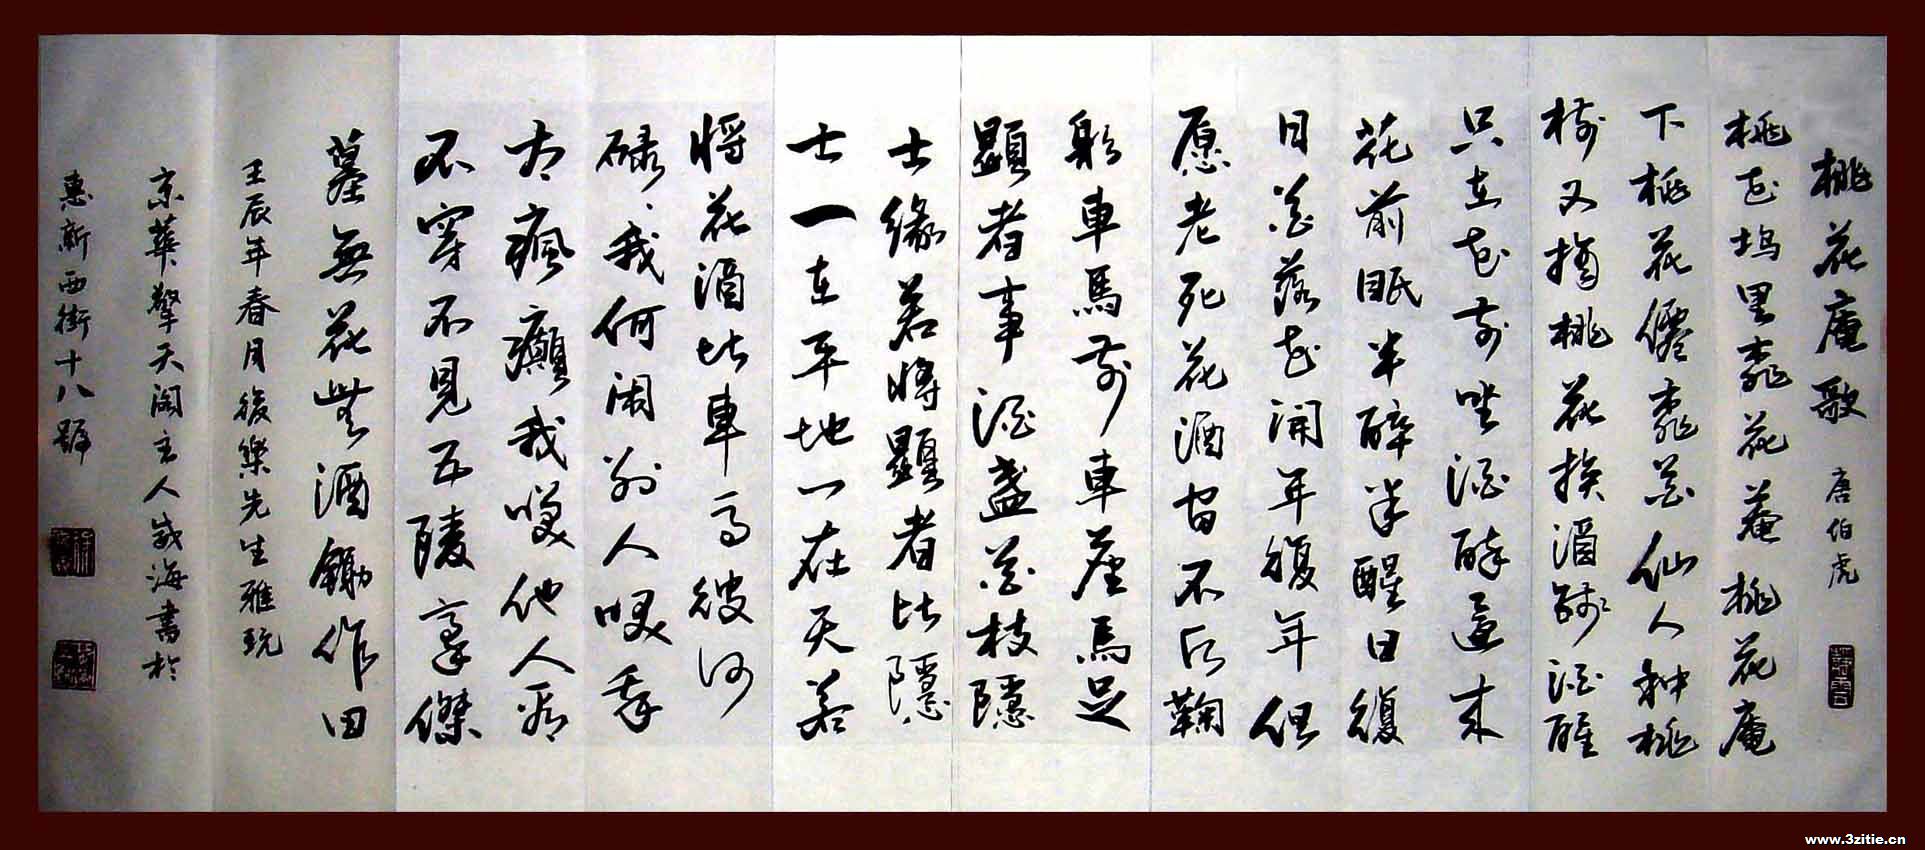 桃花庵歌 唐伯虎
桃花坞里桃花菴桃花庵
下桃花僊桃花仙人种桃
树又摘桃花换酒钱酒醒
只在花前坐酒醉還来
花前眠半醉半醒日復
日花落花開年復年但
愿老死花酒间不鞠
躬車馬前車塵馬足
顯者事酒盏花枝隱
士缘若将顯者比隱
士一在平地一在天若
将花酒比車马彼何
碌、我何闲别人咲我
太瘋癲我咲他人看
不穿不見五陵豪傑
墓無花無酒鋤作田
壬辰年春月後樂先生雅玩
京華擎天阁主人成海書於
惠新西街十八號
www.3zitie.cn